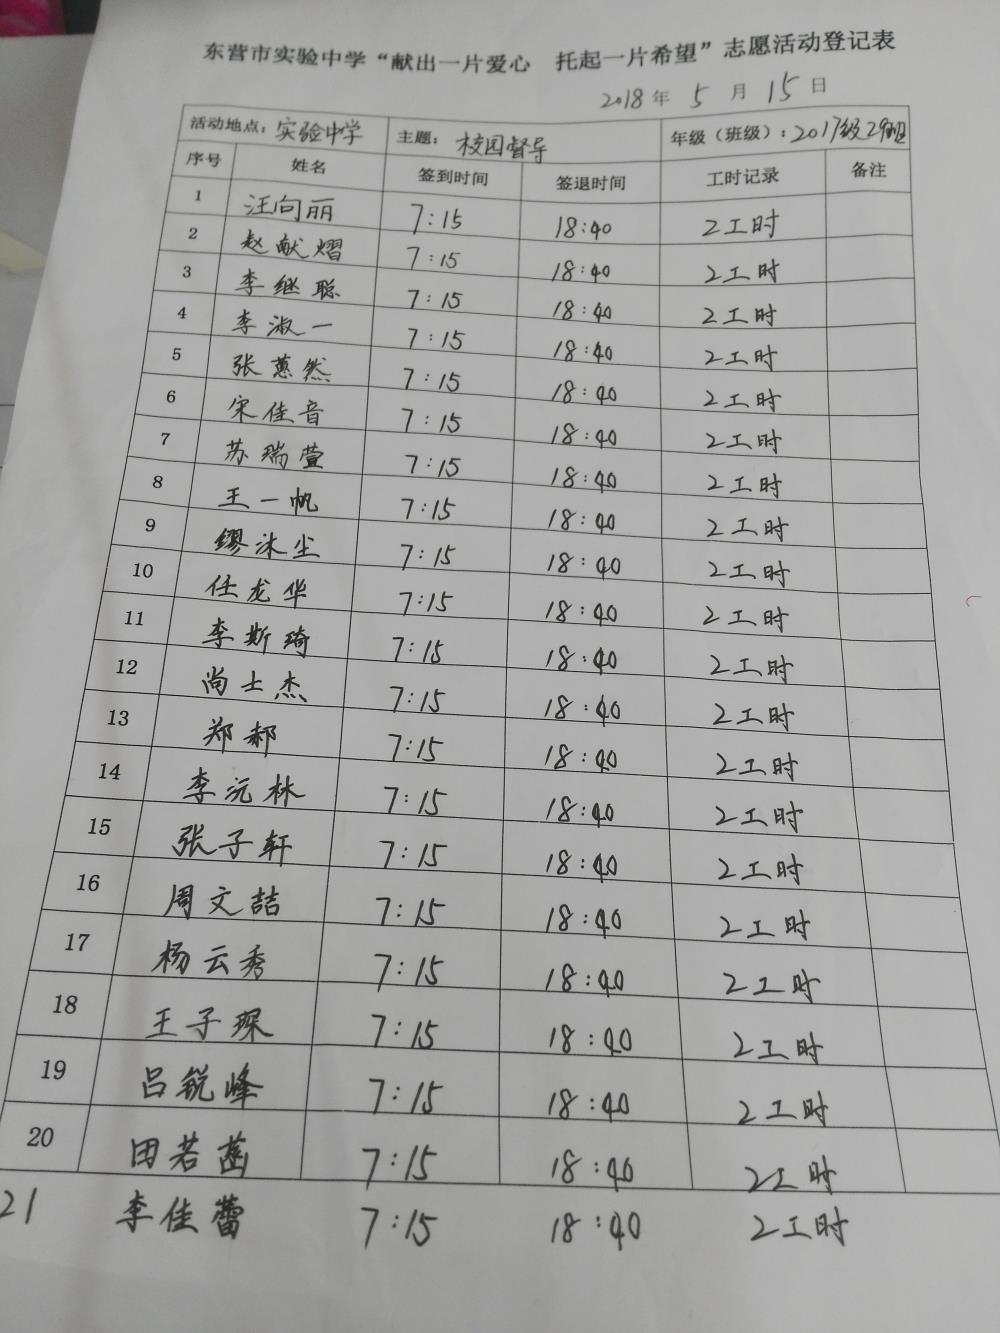 东营市实验中学“献出一片爱心 托起一片希望”志愿活动登记表
2018年 5 月 15 日
活动地点：实验中学 主题：校园督导 年级（班级）：2017级29班
序号 姓名 签到时间 签退时间 工时记录 备注
1 汪向丽 7:15 18:40 2工时
2 赵献熠 7:15 18:40 2工时
3 李继聪 7:15 18:40 2工时
4 李淑一 7:15 18:40 2工时
5 张蕙然 7:15 18:40 2工时
6 宋佳音 7:15 18:40 2工时
7 苏瑞萱 7:15 18:40 2工时
8 王一帆 7:15 18:40 2工时
9 缪沐尘 7:15 18:40 2工时
10 任龙华 7:15 18:40 2工时
11 李斯琦 7:15 18:40 2工时
12 尚士杰 7:15 18:40 2工时
13 郑郝 7:15 18:40 2工时
14 李沅林 7:15 18:40 2工时
15 张子轩 7:15 18:40 2工时
16 周文喆 7:15 18:40 2工时
17 杨云秀 7:15 18:40 2工时
18 王子琛 7:15 18:40 2工时
19 吕锐峰 7:15 18:40 2工时
20 田若菡 7:15 18:40 2工时
21 李佳蕾 7:15 18:40 2工时